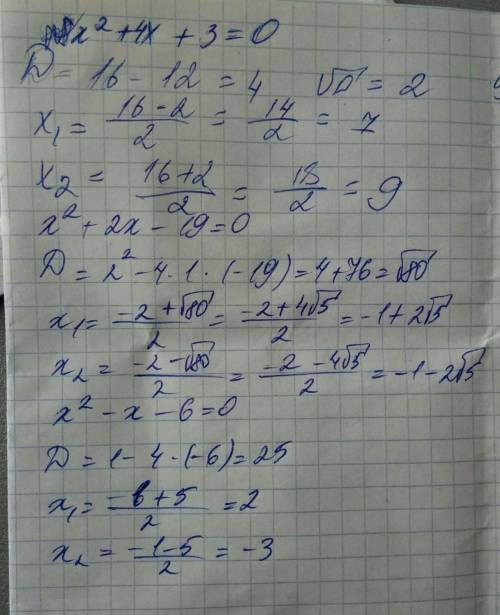 x² + 4x + 3 = 0
D = 16 - 12 = 4 √D = 2
x₁ = (16 - 2)/2 = 14/2 = 7
x₂ = (16 + 2)/2 = 18/2 = 9
x² + 2x - 19 = 0
D = 2² - 4 · 1 · (-19) = 4 + 76 = √80
x₁ = (-2 + √80)/2 = (-2 + 4√5)/2 = -1 + 2√5
x₂ = (-2 - √80)/2 = (-2 - 4√5)/2 = -1 - 2√5
x² - x - 6 = 0
D = 1 - 4 · (-6) = 25
x₁ = (+5)/2 = 2
x₂ = (-1 - 5)/2 = -3